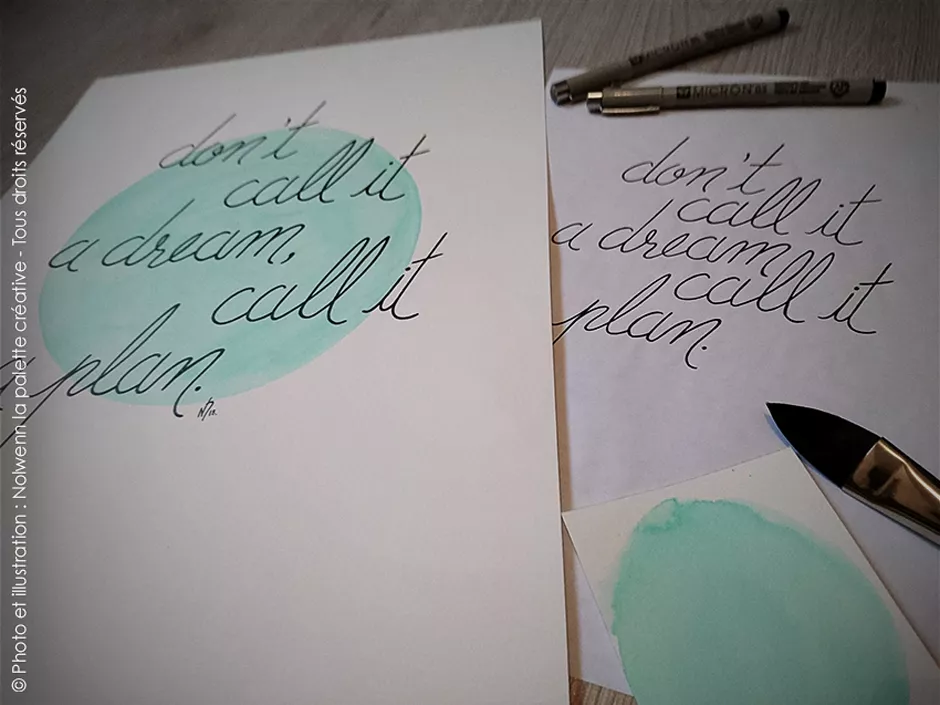 © Photo et illustration : Nolwenn la palette créative - Tous droits réservés
don't
call it
a dream,
call it
a plan.
MICRON
MICRON
don't
call it
a dream
call it
plan.